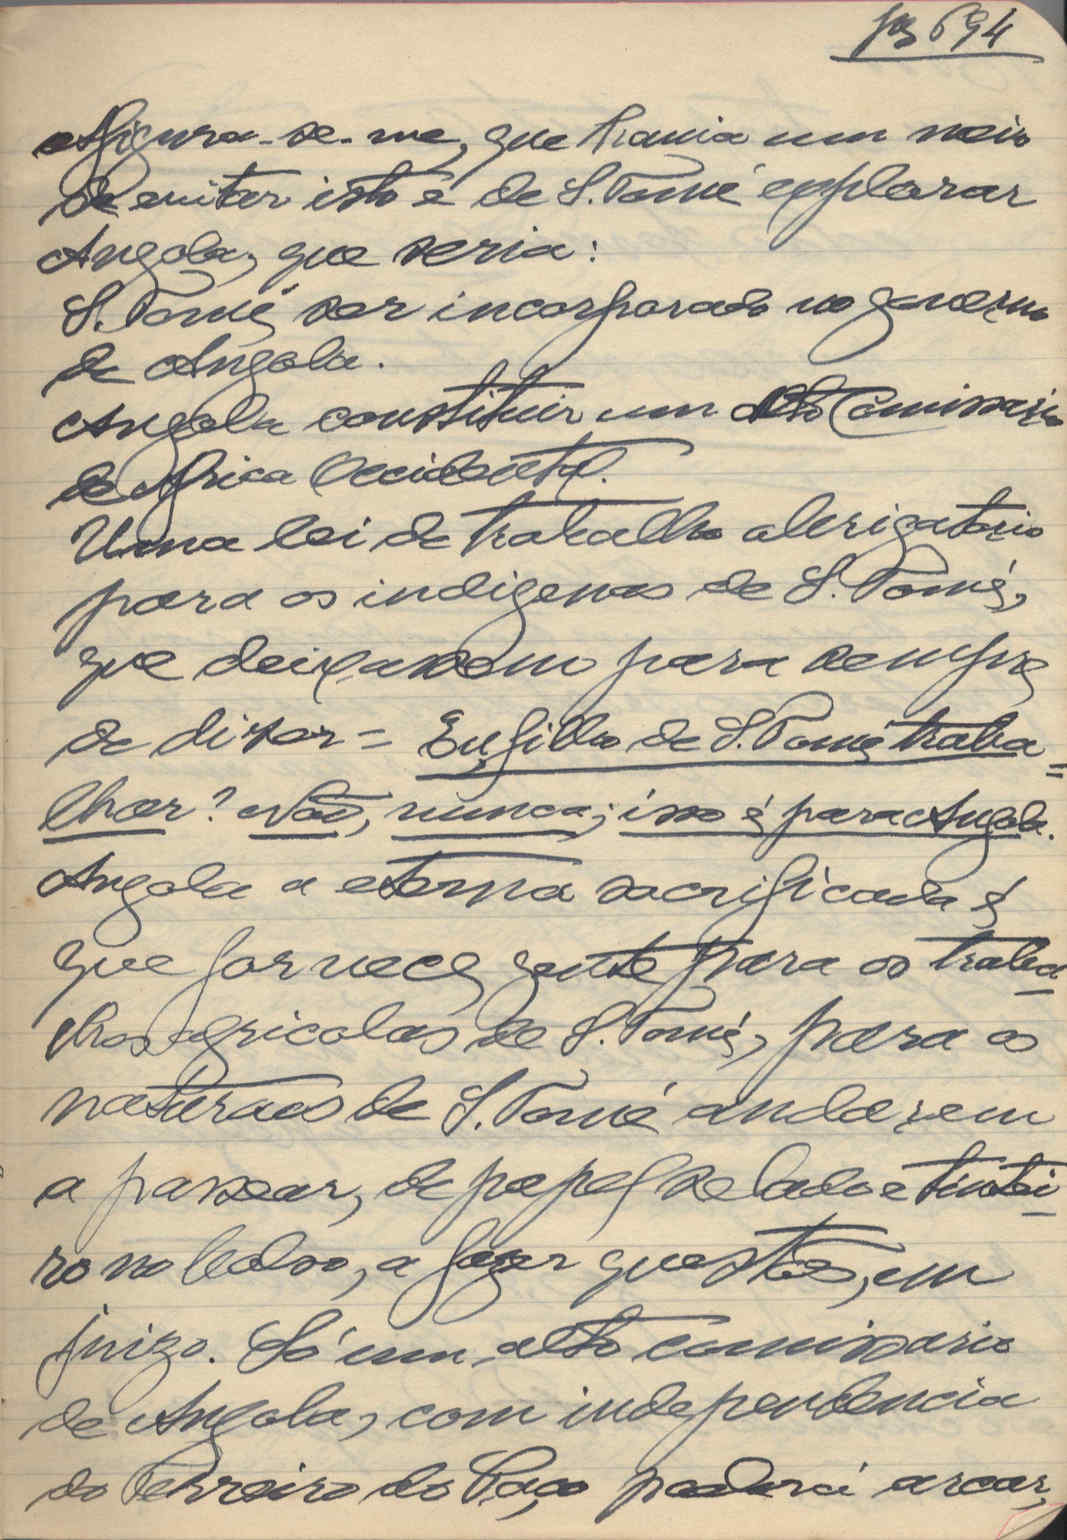 pag 694
afigura-se-me, que havia um meio
de evitar isto é de S. Tomé explorar
Angola, que seria:
S. Tomé, ser incorporado no governo
de Angola.
Angola constituir um Alto Comissario
de Africa Occidental.
Uma lei de trabalho obrigatorio
para os indigenas de S. Tomé,
que deixassem para sempre
de dizer = Eu, filho de S. Tomé, traba=
lhar? Não, nunca; isso é para Angola.
Angola a eterna sacrificada é
que fornece gente para os traba
lhos agricolas de S. Tomé, para os
naturaes de S. Tomé andarem
a passear, de papel selado e tintei
ro no bolso, a fazer questões, em
juizo. Só um alto comissario
de Angola, com independencia
do Terreiro do Paço poderá arcar,